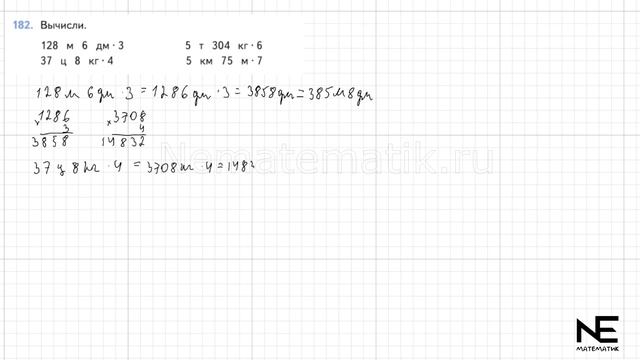 182. Вычисли.
128 м 6 дм · 3 5 т 304 кг · 6
37 ц 8 кг · 4 5 км 75 м · 7
128 м 6 дм · 3 = 1286 дм · 3 = 3858 дм = 385 м 8 дм
× 1286 × 3708
3 4
3858 14832
37 ц 8 кг · 4 = 3708 кг · 4 = 1483
Nematematik.ru
NE
МАТЕМАТИК